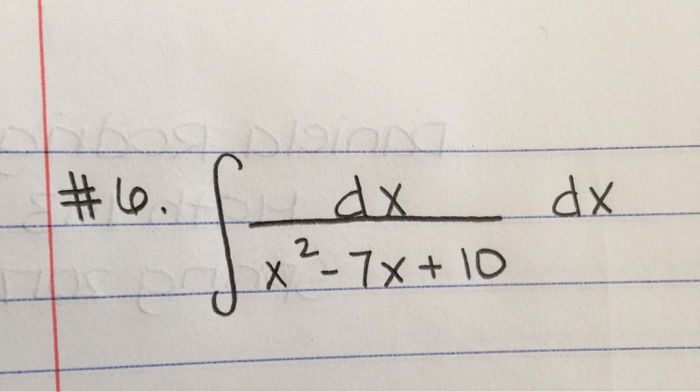 #6. ∫ dx / (x² - 7x + 10) dx